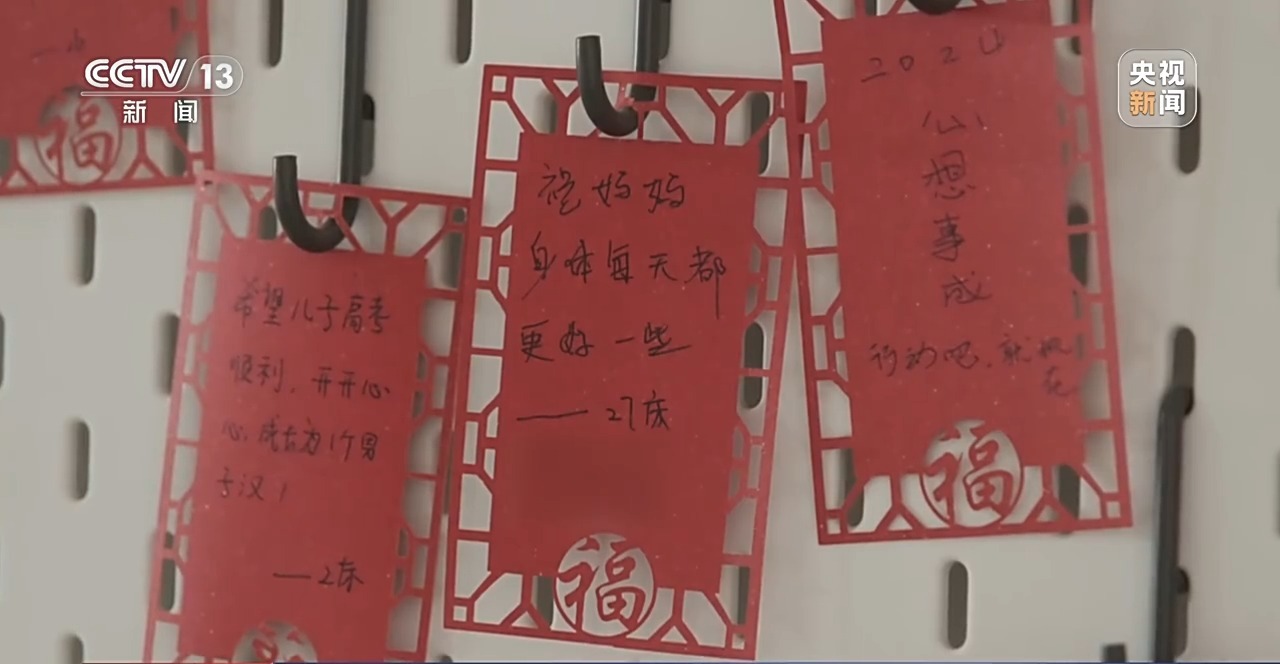 CCTV 13
新闻
央视
新闻
福
希望儿子高考
顺利，开开心
心，成长为1个男
子汉！
——2床
祝妈妈
身体每天都
更好一些
——27床
福
202
心想事成
行动吧，就现
在
福